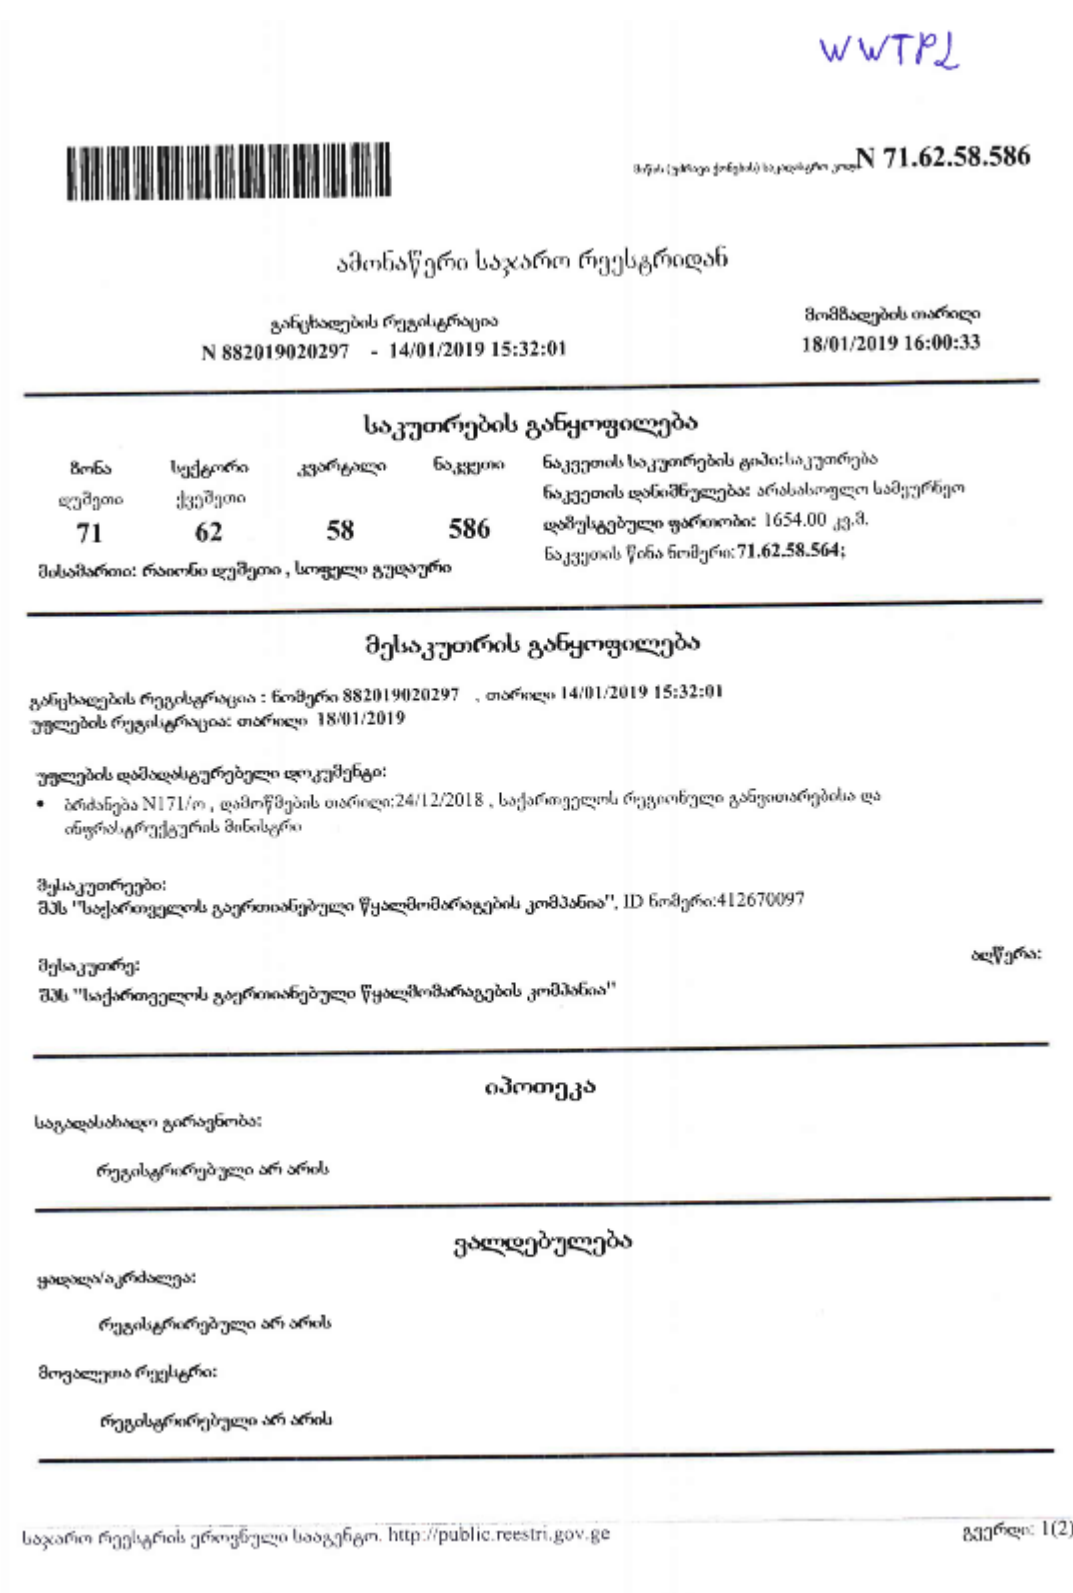 WWTP2
მიწის (უძრავი ქონების) საკადასტრო კოდი N 71.62.58.586
ამონაწერი საჯარო რეესტრიდან
განცხადების რეგისტრაცია
N 882019020297 - 14/01/2019 15:32:01
მომზადების თარიღი
18/01/2019 16:00:33
საკუთრების განყოფილება
ზონა სექტორი კვარტალი ნაკვეთი
დუშეთი ქვეშეთი
71 62 58 586
მისამართი: რაიონი დუშეთი , სოფელი გუდაური
ნაკვეთის საკუთრების ტიპი:საკუთრება
ნაკვეთის დანიშნულება: არასასოფლო სამეურნეო
დაზუსტებული ფართობი: 1654.00 კვ.მ.
ნაკვეთის წინა ნომერი:71.62.58.564;
მესაკუთრის განყოფილება
განცხადების რეგისტრაცია : ნომერი 882019020297 , თარიღი 14/01/2019 15:32:01
უფლების რეგისტრაცია: თარიღი 18/01/2019
უფლების დამადასტურებელი დოკუმენტი:
• ბრძანება N171/ო , დამოწმების თარიღი:24/12/2018 , საქართველოს რეგიონული განვითარებისა და
ინფრასტრუქტურის მინისტრი
მესაკუთრეები:
შპს "საქართველოს გაერთიანებული წყალმომარაგების კომპანია", ID ნომერი:412670097
მესაკუთრე:
აღწერა:
შპს "საქართველოს გაერთიანებული წყალმომარაგების კომპანია"
იპოთეკა
საგადასახადო გირავნობა:
რეგისტრირებული არ არის
ვალდებულება
ყადაღა/აკრძალვა:
რეგისტრირებული არ არის
მოვალეთა რეესტრი:
რეგისტრირებული არ არის
საჯარო რეესტრის ეროვნული სააგენტო. http://public.reestri.gov.ge
გვერდი: 1(2)